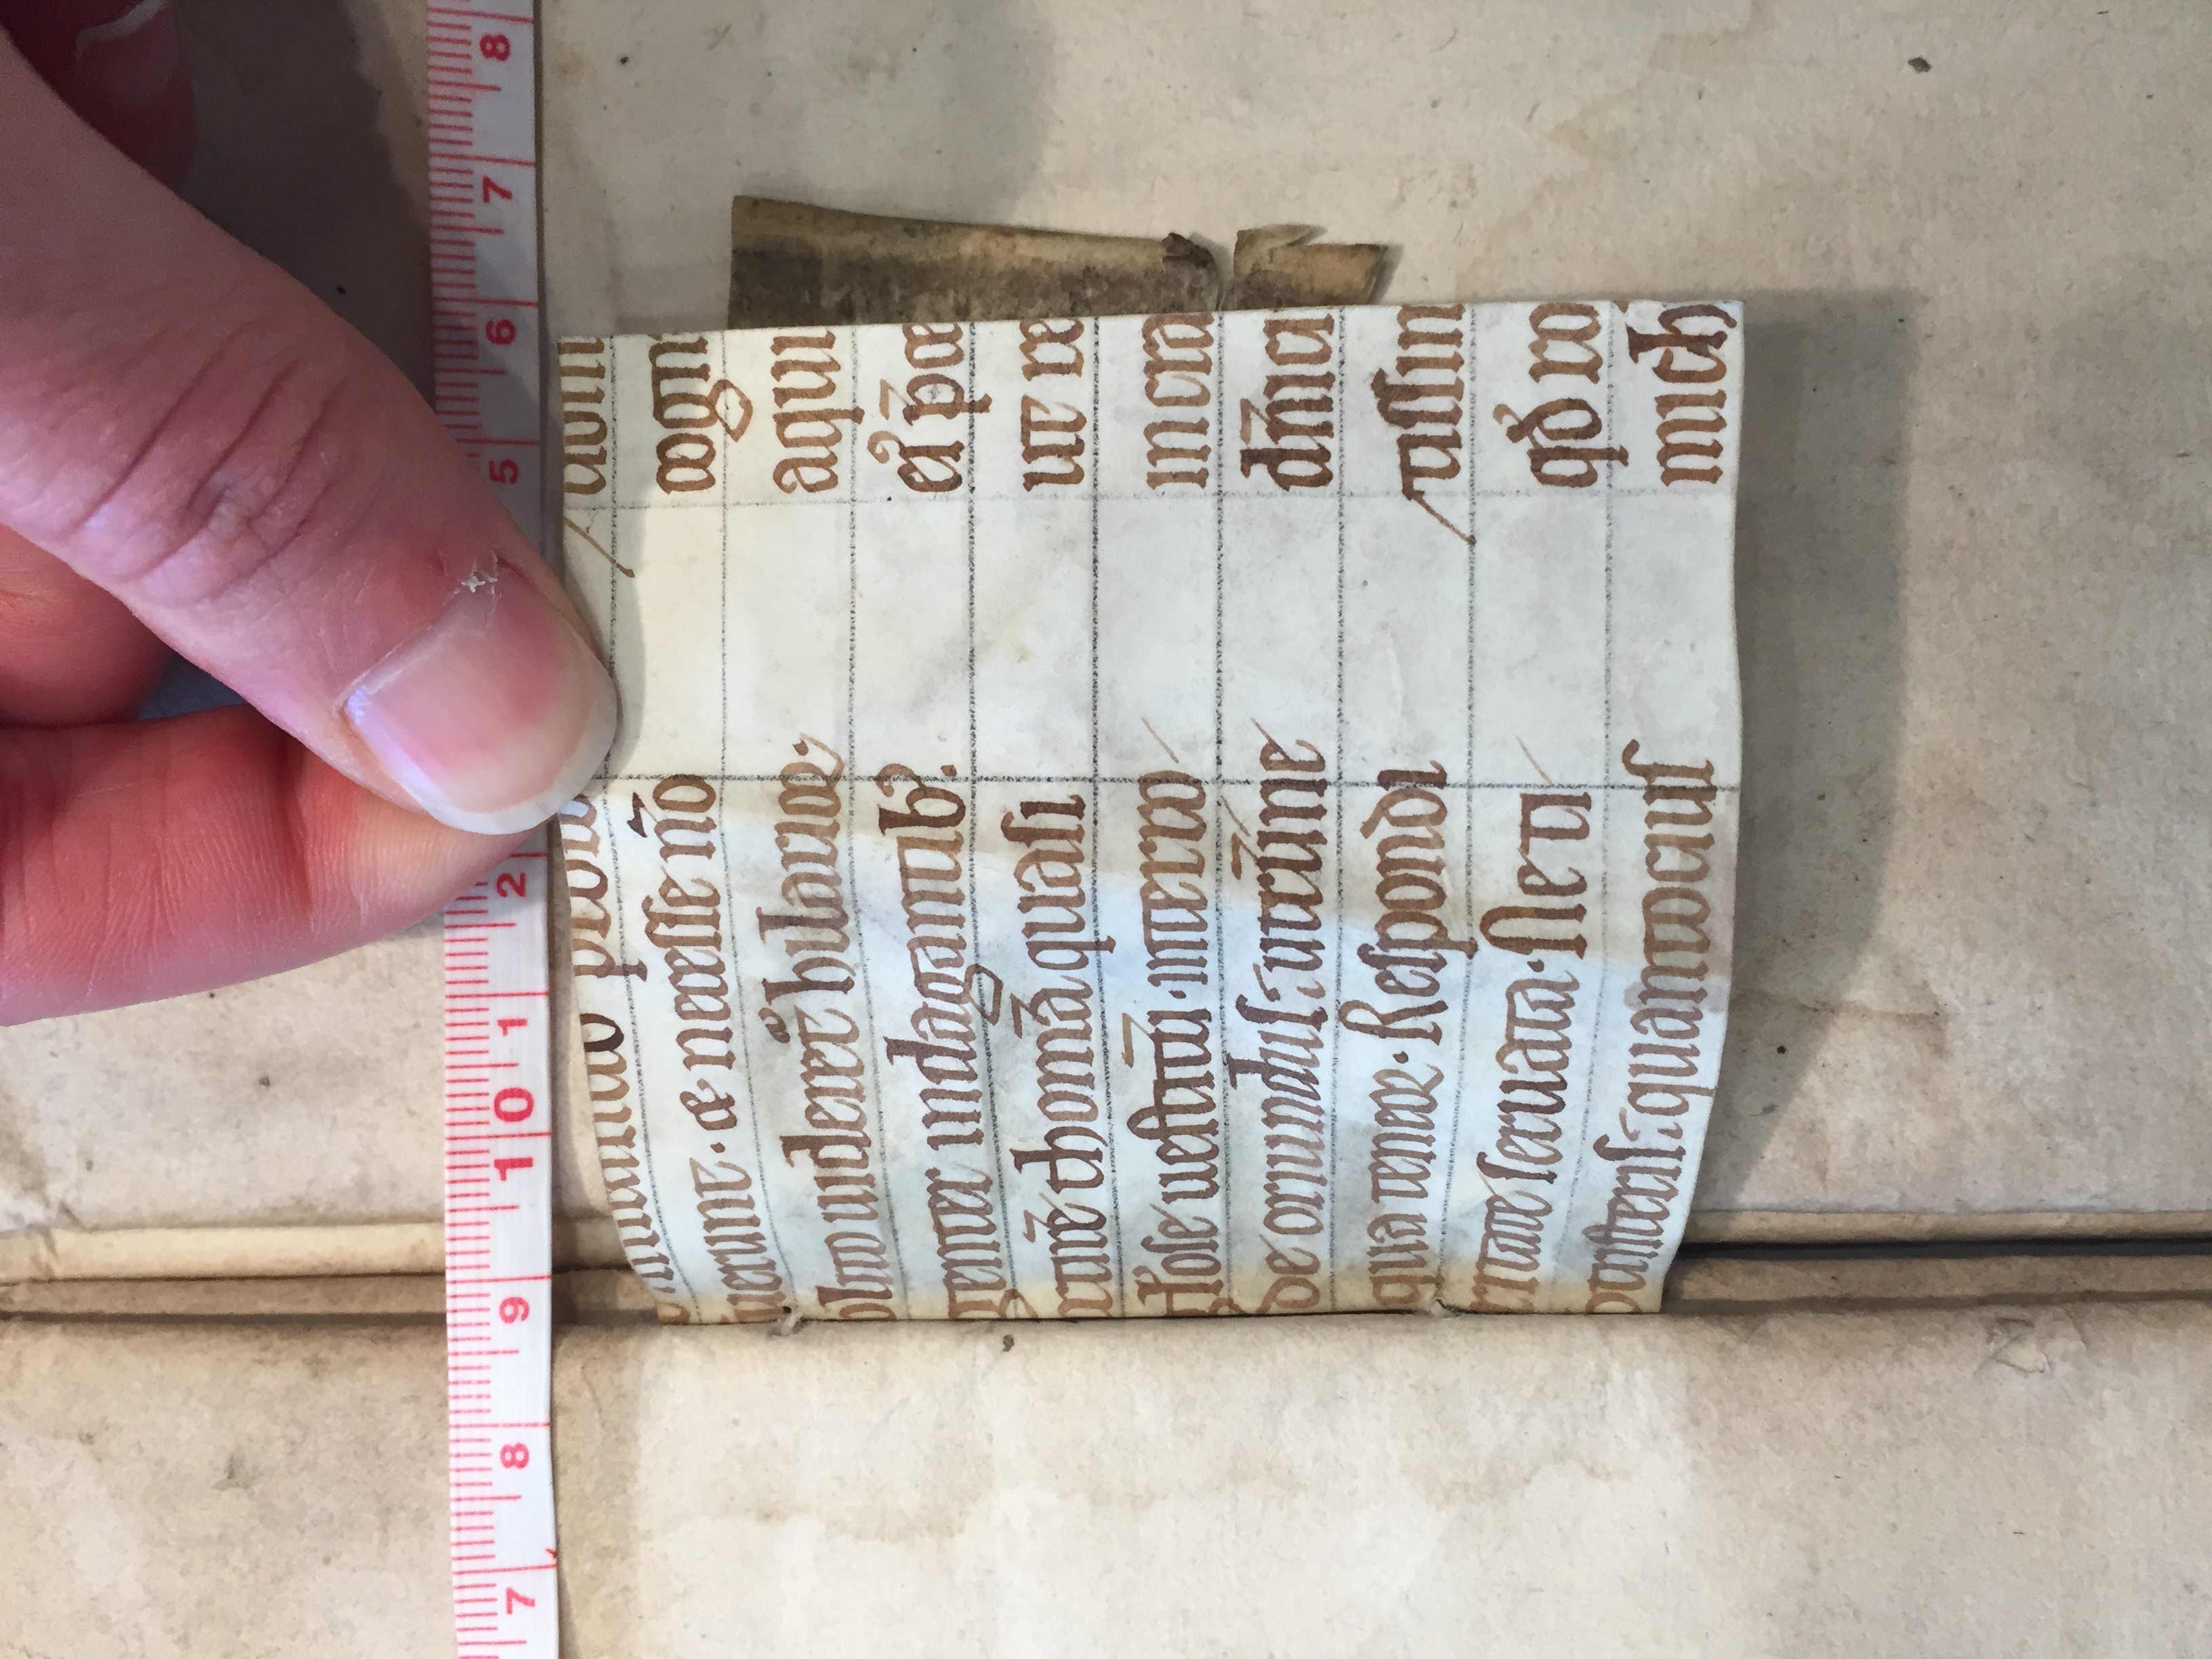 7 8 9 10 1 2 5 6 7 8
uerunt · & necesse nō
olito uideret᷑ hilarior·
genter indagantibꝰ.
rtirē thomā quasi
gl'ose uestitū · interro
de oriundus: utrūne
qua teneor· Respondi
ritate seruata· Ne ti
tristeris: quantocius
dom
cogn
aqui
eiꝰ p̄ce
ut re
in cra
dn̄ici
tissim
qđ ro
mich